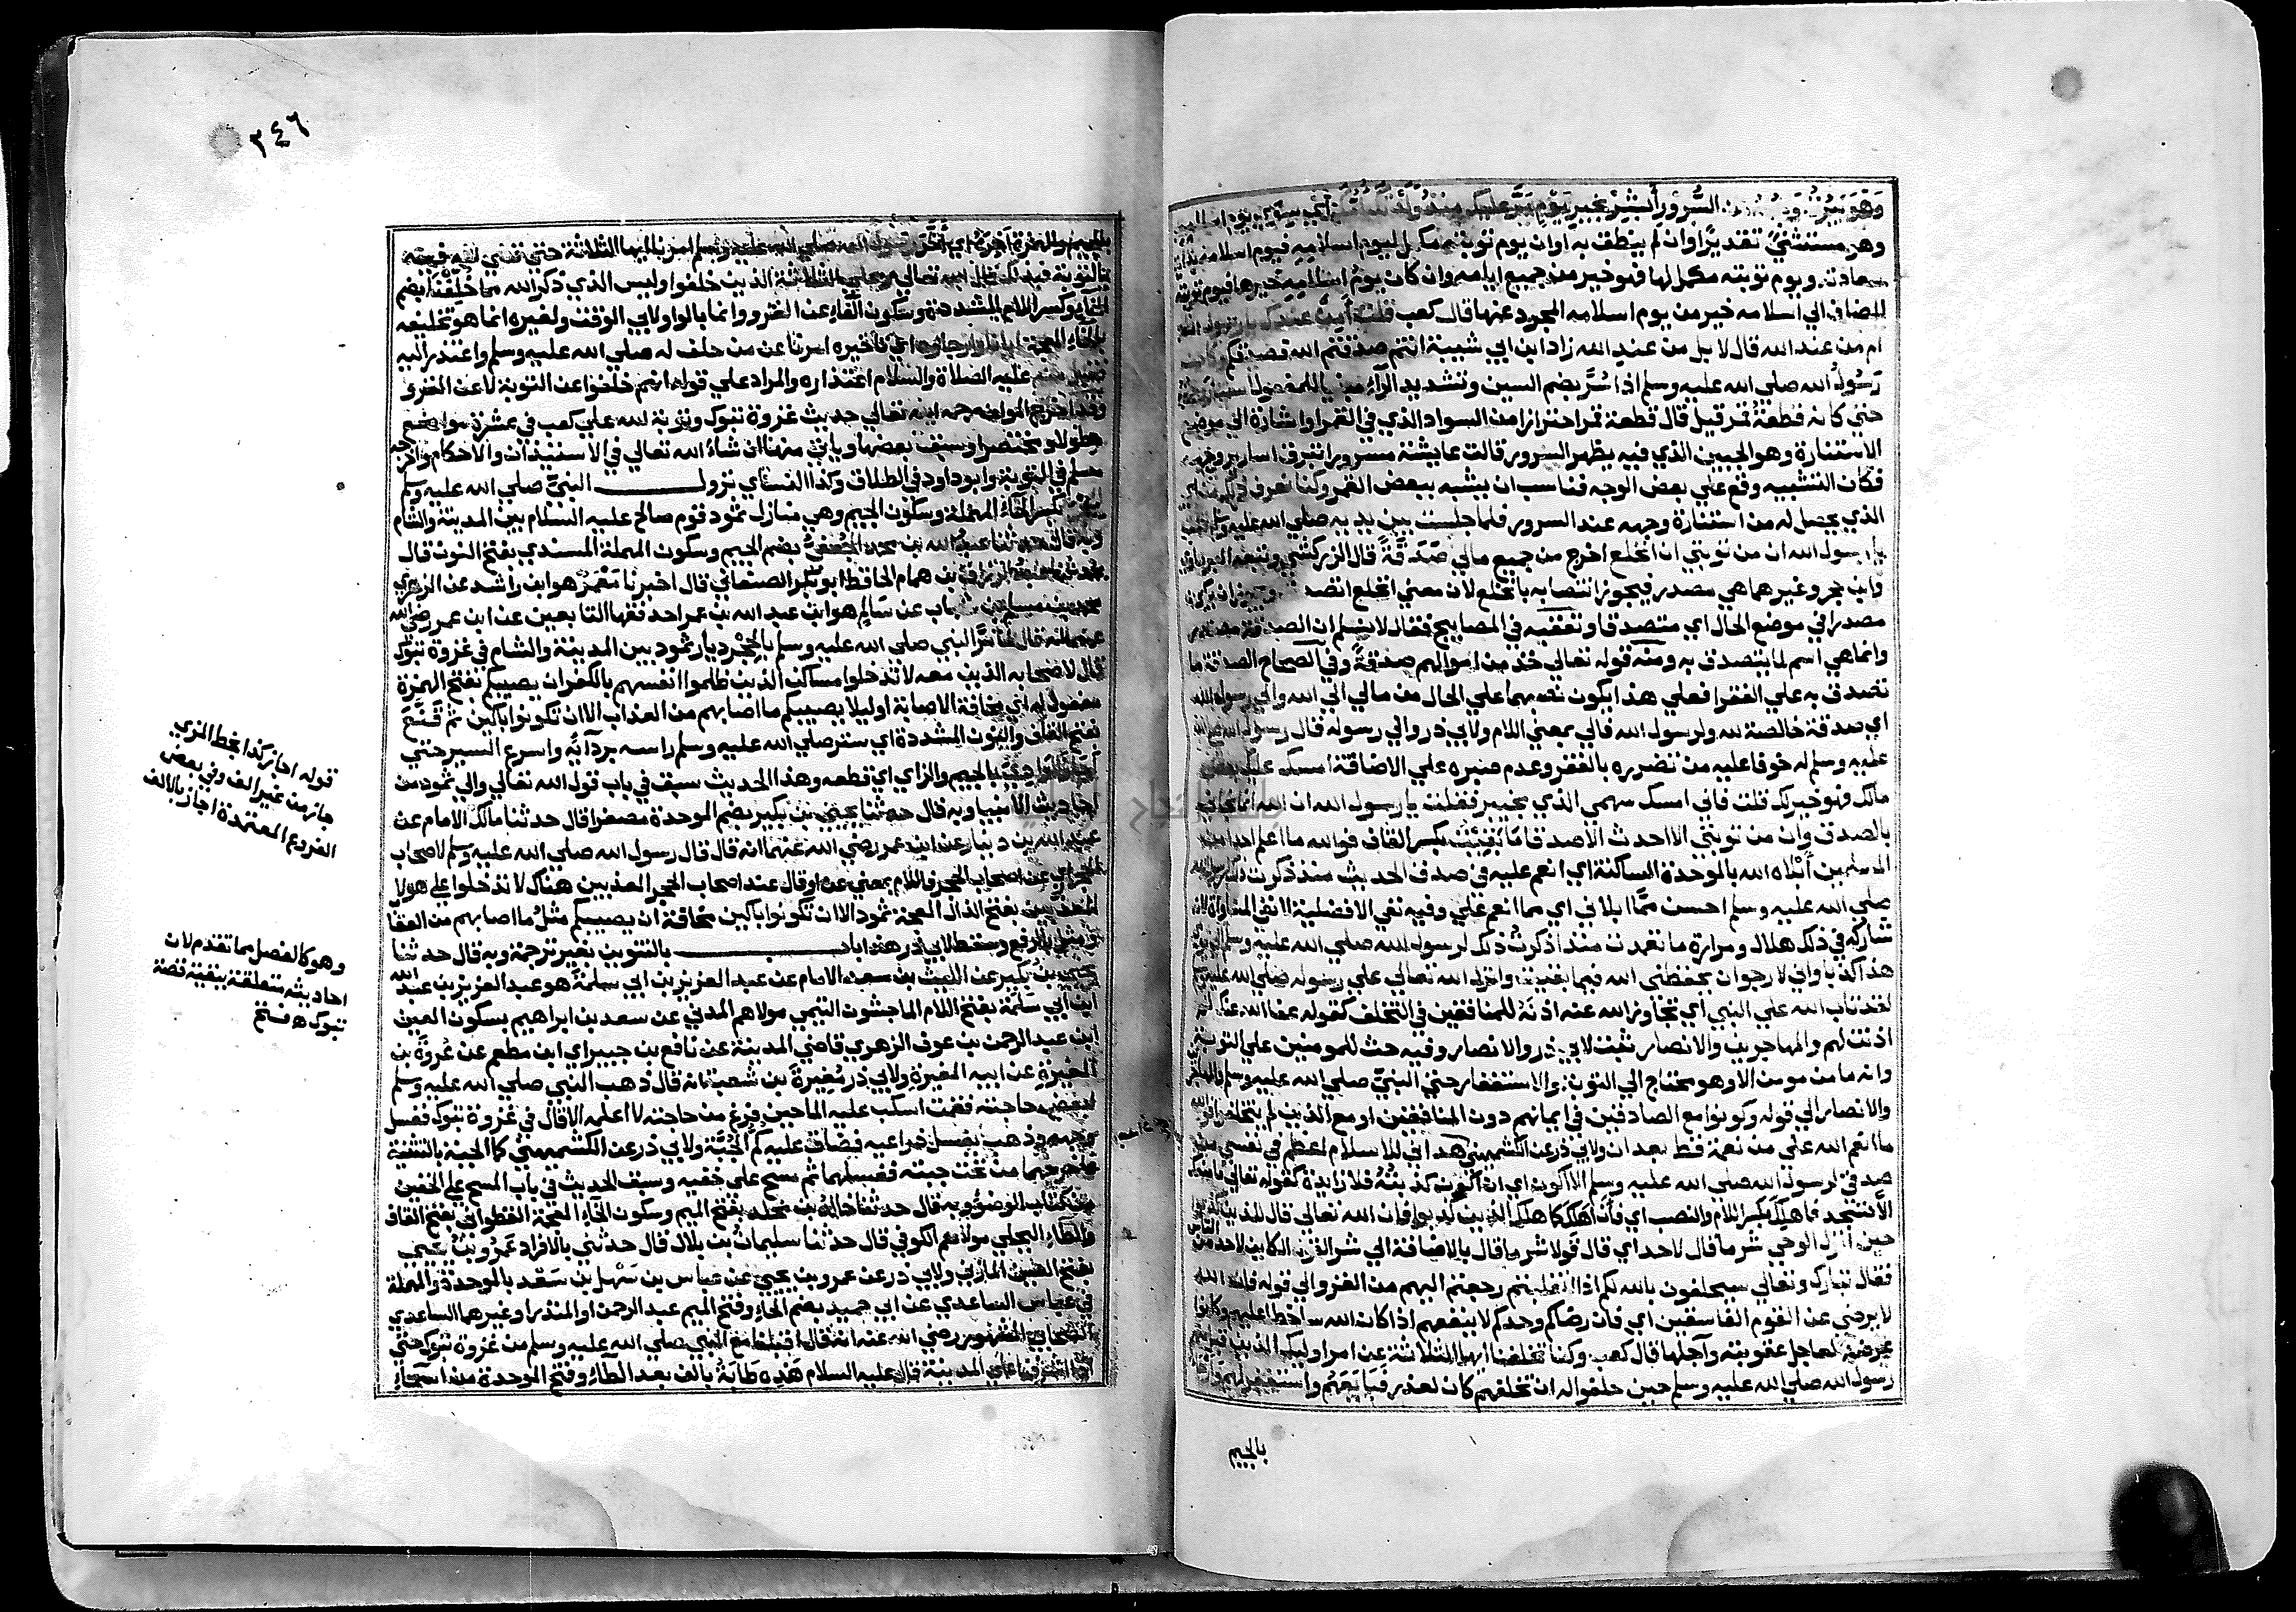 وهو يبرق وجهه من السرور أبشر بخير يوم مر عليك منذ ولدتك أمك أي سوى يوم اسلامه
وهو مستثنى تقديرا وان لم ينطق به او ان يوم توبته مكمل ليوم اسلامه فيوم اسلامه بداية
سعادته ويوم توبته مكمل لها فهو خير من جميع ايامه وان كان يوم اسلامه خيرها فيوم توبته
المضاف الي اسلامه خير من يوم اسلامه المجرد عنها قال كعب قلت أمن عندك يا رسول الله
ام من عند الله قال لا بل من عند الله زاد ابن ابي شيبة انتم صدقتم الله فصدقكم وكان
رسول الله صلي الله عليه وسلم اذا سُرَّ بضم السين وتشديد الرآء مبنيا للمفعول استنار وجهه
حتي كانه قطعة قمر قيل قال قطعة قمر احترازا من السواد الذي في القمر او اشارة الي موضع
الاستنارة وهو الجبين الذي فيه يظهر السرور قالت عايشة مسرورا تبرق اسارير وجهه
فكان التشبيه وقع علي بعض الوجه فناسب ان يشبه ببعض القمر وكنا نعرف ذلك منه اي
الذي يحصل له من استنارة وجهه عند السرور فلما جلست بين يديه صلي الله عليه وسلم قلت
يا رسول الله ان من توبتي ان انخلع اخرج من جميع مالي صَدَقَةً قال الزركشي وتبعه البرماوي
وابن حجر وغيرهما هي مصدر فيجوز انتصابه بانخلع لان معني انخلع اتصدق ويجوز ان يكون
مصدرا في موضع الحال اي متصدقا وتعقبه في المصابيح فقال لا نسلم ان الصدقة مصدر
وانما هي اسم لما يتصدق به ومنه قوله تعالي خذ من اموالهم صدقةً وفي الصحاح الصدقة ما
تصدق به علي الفقرا فعلي هذا يكون نصبها علي الحال من مالي الي الله والي رسول الله
اي صدقة خالصة لله ولرسول الله فالي بمعني اللام ولابي ذر والي رسوله قال رسول الله صلي الله
عليه وسلم له خوفا عليه من تضرره بالفقر وعدم صبره علي الاضاقة امسك عليك بعض
مالك فهو خير لك قلت فاني امسك سهمي الذي بخيبر فقلت يا رسول الله ان الله انما نجاني
بالصدق وان من توبتي الا احدث الا صدقا ما بَقِيتُ بكسر القاف فوالله ما اعلم احدا من
المسلمين أَبْلاه الله بالموحدة الساكنة اي انعم عليه في صدق الحديث منذ ذكرت ذلك لرسول الله
صلي الله عليه وسلم احسن ممَّا ابلاني اي مما انعم علي وفيه نفي الافضلية لا نفي المساواة لانه
شاركه في ذلك هلال ومرارة ما تعمدت منذ ذكرتُ ذلك لرسول الله صلي الله عليه وسلم الي يومي
هذا كذبا واني لارجو ان يحفظني الله فيما بقيت وانزل الله تعالي علي رسوله صلي الله عليه وسلم
لقد تاب الله علي النبي اي تجاوز الله عنه اذنه للمنافقين في التخلف كقوله عفا الله عنك لم
اذنت لهم والمهاجرين والانصار ثبت لابي ذر والانصار وفيه حث للمومنين علي التوبة
وانه ما من مومن الا وهو محتاج الي التوبة والاستغفار حتي النبي صلي الله عليه وسلم والمهاجرين
والانصار الي قوله وكونوا مع الصادقين في ايمانهم دون المنافقين او مع الذين لم يتخلفوا فوالله
ما انعم الله علي من نعمة قط بعد ان ولابي ذر عن الكشميهني هداني للاسلام اعظم في نفسي من
صدقي لرسول الله صلي الله عليه وسلم الا اكون اي ان اكون كذبته فلا زايدة كقوله تعالي ما منعك
الا تسجد فاهلك بكسر اللام والنصب اي فأن اهلك كما هلك الذين كذبوا فان الله تعالي قال للذين كذبوا
حين انزل الوحي شر ما قال لاحد اي قال قولا شر ما قال بالاضافة الي شر القول الكاين لاحد من الناس
فقال تبارك وتعالي سيحلفون بالله لكم اذا انقلبتم رجعتم اليهم من الغزو الي قوله فان الله
لا يرضي عن القوم الفاسقين اي فان رضاكم وحدكم لا ينفعهم اذا كان الله ساخطا عليهم وكانوا
عرضة لعاجل عقوبته وآجلها قال كعب وكنا تخلفنا ايها الثلاثة عن امر اوليك الذين قبل منهم
رسول الله صلي الله عليه وسلم حين حلفوا له ان تخلفهم كان لعذر فبايعهم واستغفر لهم وارجأ
بالجيم
٣٤٦
بالجيم والهمزة آخره اي أخر رسول الله صلي الله عليه وسلم امرنا ايها الثلاثة حتي قضي الله فيه
بالتوبة فبذلك قال الله تعالي وعلي الثلاثة الذين خلفوا وليس الذي ذكر الله مما خلفنا بضم
الخاء وكسر اللام المشددة وسكون الفاء عن الغزو وانما بالواو لابي الوقت ولغيره انما هو تخليفه
بالخاء المعجمة ايانا وارجاؤه اي تاخيره امرنا عن من حلف له صلي الله عليه وسلم واعتذر اليه
فقبل منه عليه الصلاة والسلام اعتذاره والمراد علي قوله انهم خلفوا عن التوبة لا عن الغزو
وقد اخرج المولف رحمه الله تعالي حديث غزوة تبوك وتوبة الله علي كعب في عشرة مواضع
مطولا ومختصرا وسبق بعضها وياتي منها ان شاء الله تعالي في الاستيذان والاحكام واخرجه
مسلم في التوبة وابو داود في الطلاق وكذا النساي نزول النبي صلي الله عليه وسلم
الحجر بكسر الحاء المهملة وسكون الجيم وهي منازل ثمود قوم صالح عليه السلام بين المدينة والشام
وبه قال حدثنا عبد الله بن محمد الجعفي بضم الجيم وسكون المهملة المسندي بفتح النون قال
حدثنا عبد الرزاق بن همام الحافظ ابو بكر الصنعاني قال اخبرنا مَعْمَر هو ابن راشد عن الزهري
محمد بن مسلم بن شهاب عن سالم هو ابن عبد الله بن عمر احد فقها التابعين عن ابن عمر رضي الله
عنهما انه قال لما مرَّ النبي صلي الله عليه وسلم بالحِجْر ديار ثمود بين المدينة والشام في غزوة تبوك
قال لاصحابه الذين معه لا تدخلوا مساكن الذين ظلموا انفسهم بالكفر ان يصيبكم بفتح الهمزة
مفعول له اي مخافة الاصابة او ليلا يصيبكم ما اصابهم من العذاب الا ان تكونوا باكين ثم قَنَّع
بفتح القاف والنون المشددة اي ستر صلي الله عليه وسلم راسه بردآئه واسرع السير حتي
اجاز الوادي بالجيم والزاي اي قطعه وهذا الحديث سبق في باب قول الله تعالي والي ثمود من
احاديث الانبيا وبه قال حدثنا يحيى بن بكير بضم الموحدة مصغرا قال حدثنا مالك الامام عن
عبد الله بن دينار عن ابن عمر رضي الله عنهما انه قال قال رسول الله صلي الله عليه وسلم لاصحاب
الحجر اي عن اصحاب الحجر فاللام بمعني عن او قال عند اصحاب الحجر المعذبين هناك لا تدخلوا علي هولا
المعذبين بفتح الذال المعجمة ثمود الا ان تكونوا باكين مخافة ان يصيبكم مثلُ ما اصابهم من العقا
ومثل بالرفع وسقط لابي ذر هذا باب بالتنوين بغير ترجمة وبه قال حدثنا
يحيى بن بكير عن الليث بن سعد الامام عن عبد العزيز بن ابي سلمة هو عبد العزيز بن عبد الله
ابن ابي سلمة بفتح اللام الماجشون التيمي مولاهم المدني عن سعد بن ابراهيم بسكون العين
ابن عبد الرحمن بن عوف الزهري قاضي المدينة عن نافع بن جبير اي ابن مطعم عن عُروة بن
المغيرةِ عن ابيه المغيرة ولابي ذر مُغِيرةَ بن شعبة انه قال ذهب النبي صلي الله عليه وسلم
لبعض حاجته فقمت اسكب عليه الما حين فرغ من حاجته لا اعلمه الا قال في غزوة تبوك فغسل
وجهه وذهب يغسل ذراعيه فضاق عليه كم الجُبَّة ولابي ذر عن الكشميهني كما الجبة بالتثنية
فاخرجهما من تحت جبته فغسلهما ثم مسح علي خفيه وسبق الحديث في باب المسح علي الخفين
من كتاب الوضوء وبه قال حدثنا خالد بن مخلد بفتح الميم وسكون الخاء المعجمة القطواني بفتح القاف
والطاء البجلي مولاهم الكوفي قال حدثنا سليمان بن بلال قال حدثني بالافراد عَمرُو بن يحيى
بفتح العين المازني ولابي ذر عن عمرو بن يحيى عن عباس بن سَهْل بن سَعْد بالموحدة والمهملة
في عباس الساعدي عن ابي حميد بضم الحاء وفتح الميم عبد الرحمن او المنذر او غيرهما الساعدي
الصحابي المشهور رضي الله عنه انه قال اقبلنا مع النبي صلي الله عليه وسلم من غزوة تبوك حتي
اذا اشرفنا علي المدينة قال عليه السلام هذه طَابَةُ بالف بعد الطاء وفتح الموحدة من اسماء
قوله اجاز كذا بخط المزي
جاز من غير الف وفي بعض
الفروع المعتمدة اجاز بالالف
وهو كالفصل مما تقدم لان
احاديثه متعلقة ببقية قصة
تبوك ه فتح